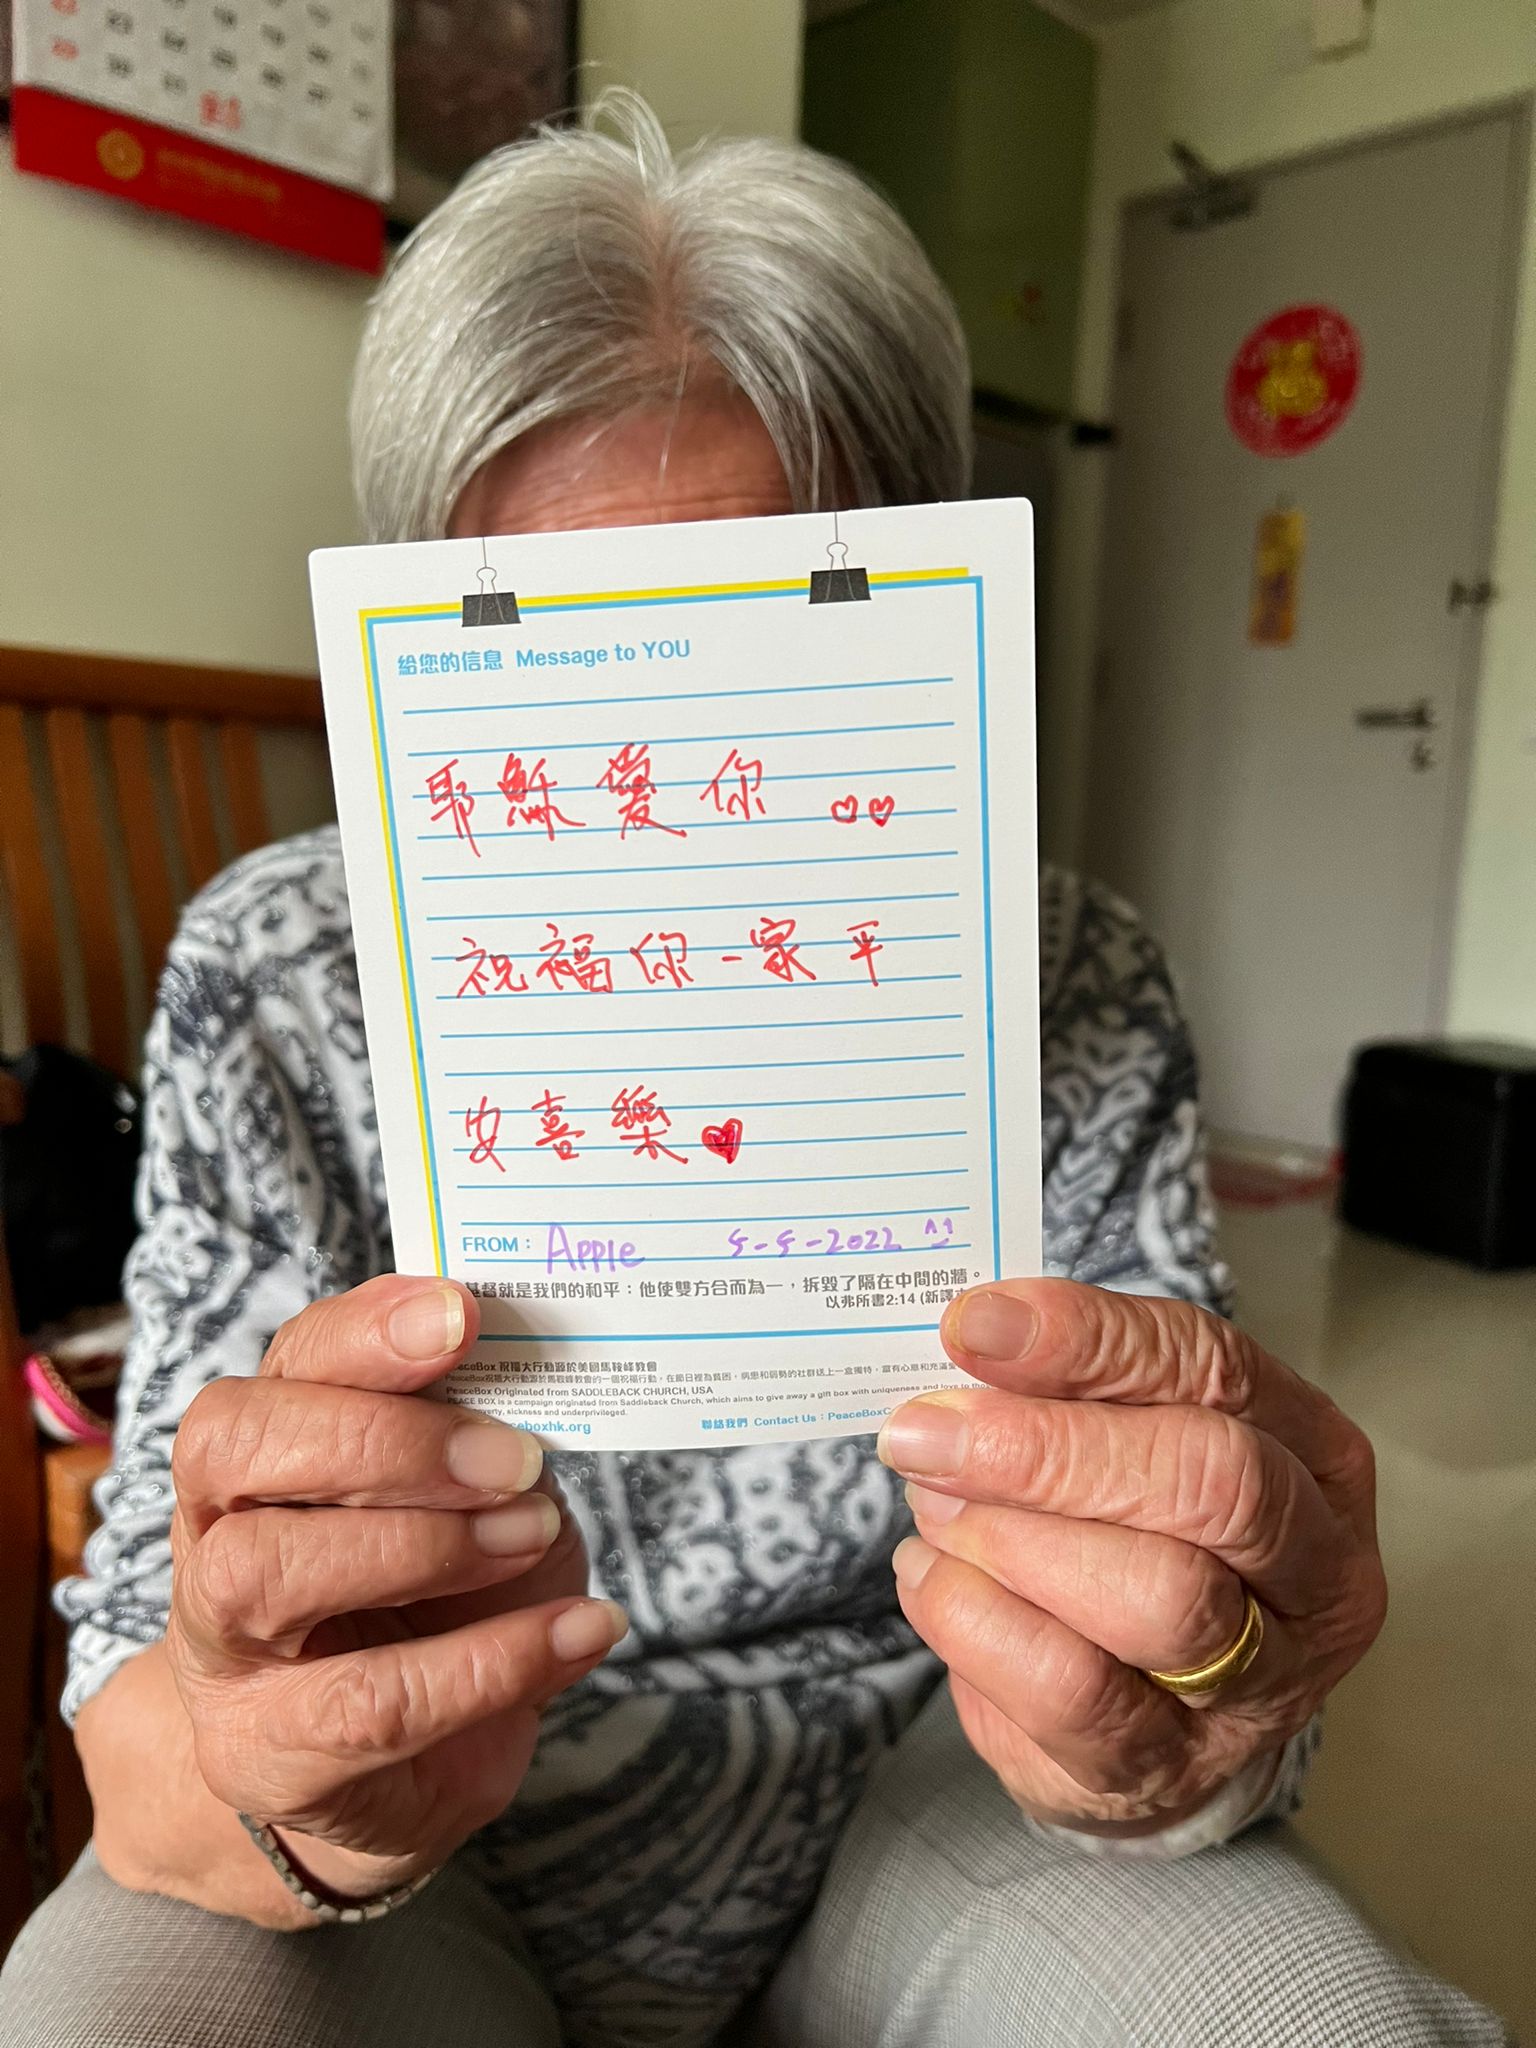 給您的信息 Message to YOU
耶穌愛你
祝福你一家平
安喜樂
FROM： Apple 5-5-2022
基督就是我們的和平：他使雙方合而為一，拆毀了隔在中間的牆。
以弗所書2:14 (新譯
PeaceBox 祝福大行動源於美國馬鞍峰教會
PeaceBox祝福大行動源於馬鞍峰教會的一個祝福行動，在節日裡為貧困，病患和弱勢的社群送上一盒獨特，富有心意和充滿
PeaceBox Originated from SADDLEBACK CHURCH, USA
PEACE BOX is a campaign originated from Saddleback Church, which aims to give away a gift box with uniqueness and love to
poverty, sickness and underprivileged.
eboxhk.org 聯絡我們 Contact Us : PeaceBoxC
福